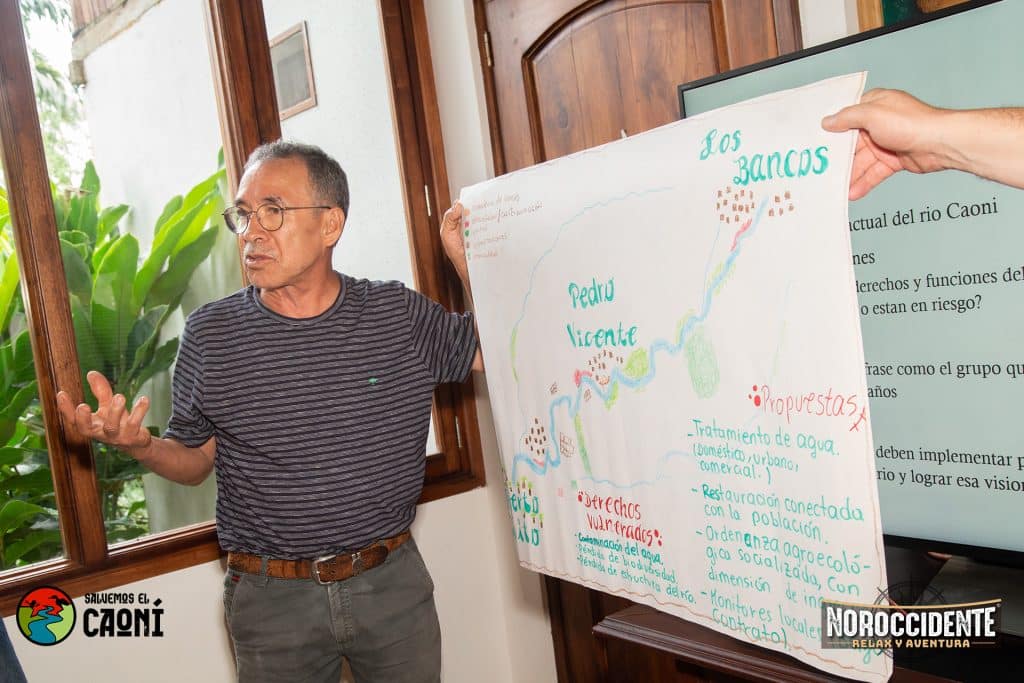 LOS
BANCOS
Pedro
Vicente
Propuestas
-Tratamiento de agua.
(Doméstico, urbano,
comercial.)
- Restauración conectada
con la población.
- Ordenanza agroecoló-
gica socializada, con
dimensión de
- Monitores locales
Contrato),
Derechos
vulnerados
- Contaminación del agua.
- Pérdida de biodiversidad.
- Pérdida de estructura del río.
actual del rio Caoni
nes
derechos y funciones del
o estan en riesgo?
frase como el grupo qu
años
deben implementar p
rio y lograr esa vision
SALVEMOS EL
CAONÍ
NOROCCIDENTE
RELAX Y AVENTURA